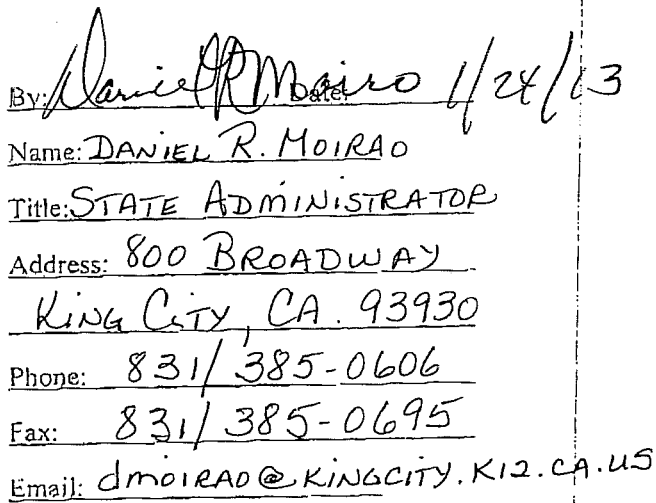 By: Daniel R Moirao Date: 1/24/13
Name: DANIEL R. MOIRAO
Title: STATE ADMINISTRATOR
Address: 800 BROADWAY
KING CITY, CA. 93930
Phone: 831/385-0606
Fax: 831/385-0695
Email: dmoirao@kingcity.k12.ca.us